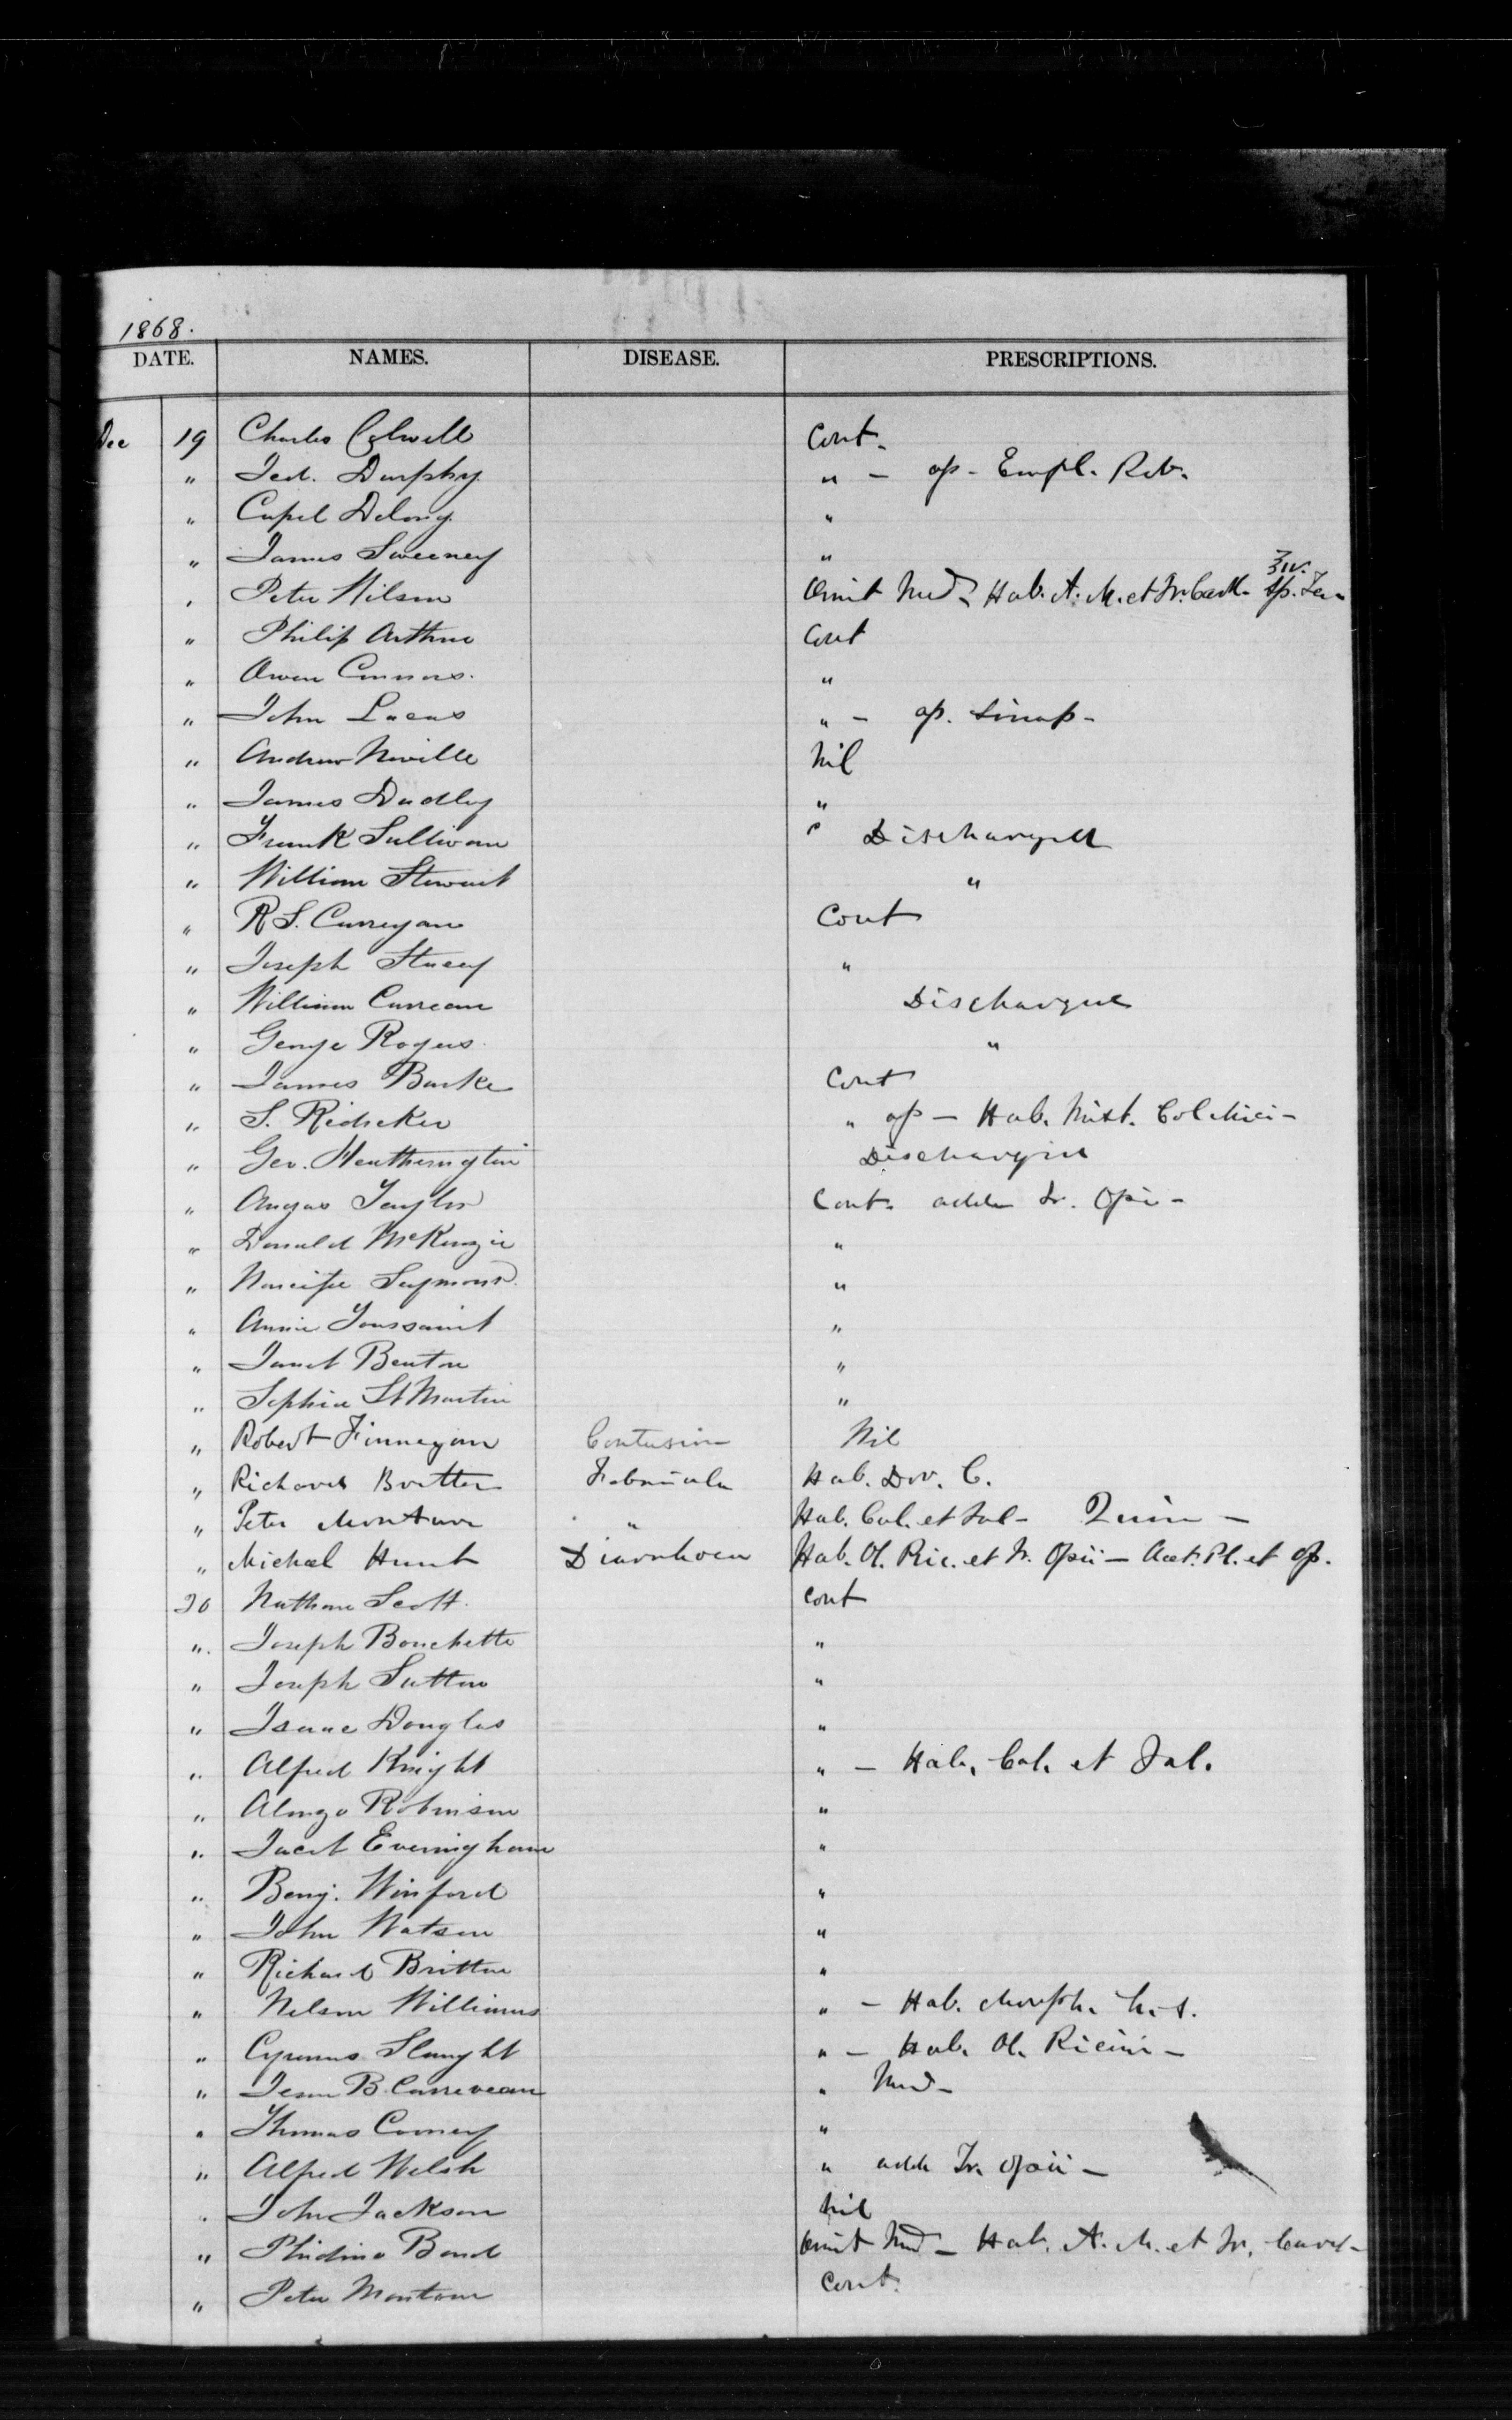 1868.
DATE. NAMES. DISEASE. PRESCRIPTIONS.
Dec 19 Charles Colwell Cont.
" Jed. Durphy " - op - Empl. Rob.
" Capel Delong "
" James Sweeney "
ʒiv.
" Peter Wilson Omit Med - Hab. A. M. et Tr. Card. Sp.
" Philip Arthur Cont
" Owen Connors. "
" John Lucas " - op. Sinap -
" Andrew Neville Nil
" James Dudley "
" Frank Sullivan " Discharged
" William Stewart "
" R S. Curregan Cont
" Joseph Stacey "
" William Curreau Discharged
" George Rogers "
" James Burke Cont
" S. Redicker " op - Hab. Mist. Colchici -
" Geo. Heatherington Discharged
" Angus Taylor Cont. adde Tr. Opii -
" Donald McKenzie "
" Narcisse Seymour "
" Annie Toussaint "
" Janet Benton "
" Sophia St Martin "
" Robert Finnegan Contusion Nil
" Richard Britton Febricula Hab. Dov. C.
" Peter Montour " Hab. Cal. et Jal - Quin -
" Michael Hunt Diarrhoea Hab. Ol. Ric. et Tr. Opii - Acet. Pl. et Op.
20 Nathan Scott. Cont
" Joseph Bouchette "
" Joseph Sutton "
" Isaac Douglas "
" Alfred Knight " - Hab. Cal. et Jal.
" Alonzo Robinson "
" Jacob Everingham "
" Benj. Winford "
" John Watson "
" Richard Britton "
" Nelson Williams " - Hab. Morph. h. s.
" Cyrenus Slaught " - Hab. Ol. Ricini -
" Jean B. Carreveau " Med -
" Thomas Cooney "
" Alfred Welsh " adde Tr. Opii -
" John Jackson Nil
" Phidime Bond Omit Med - Hab. A. M. et Tr. Card -
" Peter Montour Cont.